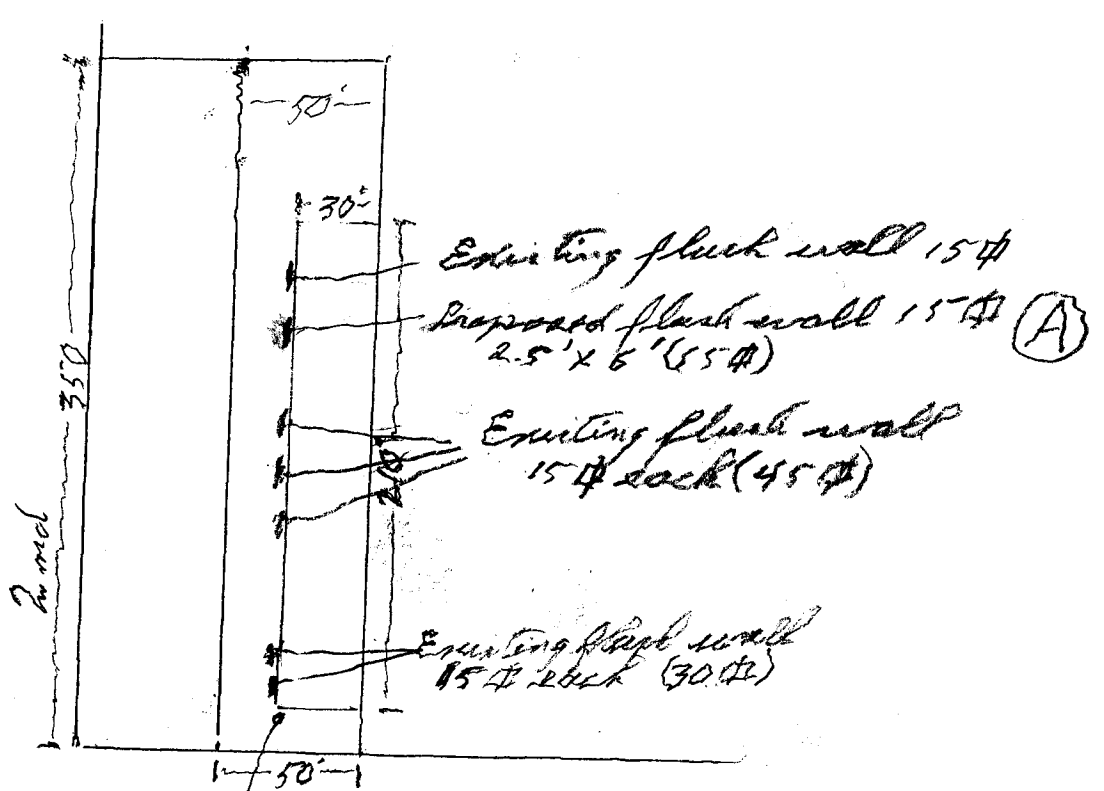 50'
30'
Existing flush wall 15⌀
Proposed flush wall 15⌀ (A)
2.5' x 6' (15⌀)
350
Existing flush wall
15⌀ each (45⌀)
210'
Existing flush wall
15⌀ each (30⌀)
50'